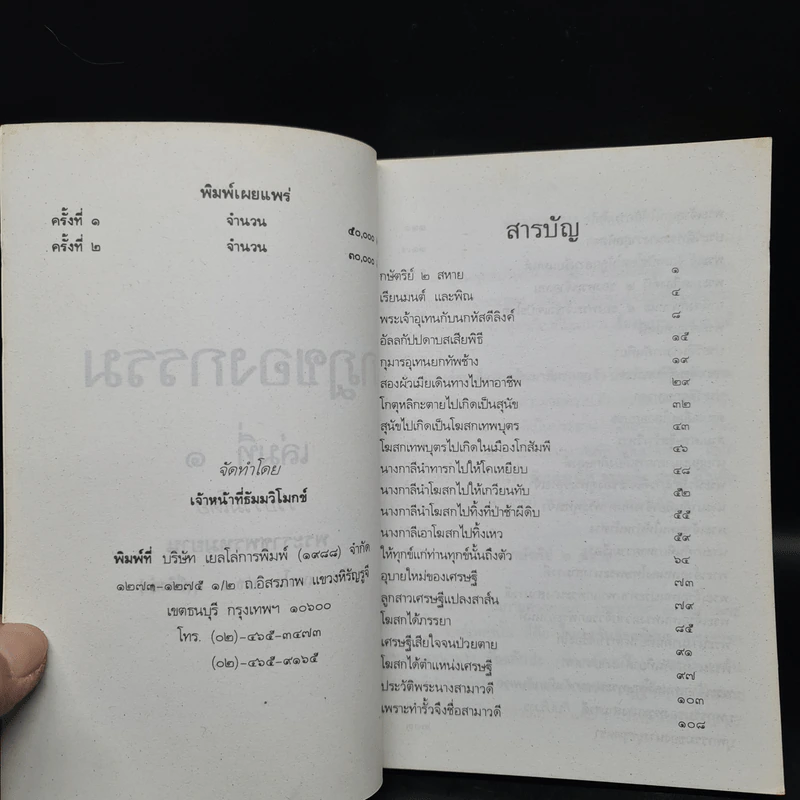 พิมพ์เผยแพร่
ครั้งที่ ๑ จำนวน ๕๐,๐๐๐
ครั้งที่ ๒ จำนวน ๓๐,๐๐๐
จัดทำโดย
เจ้าหน้าที่ธัมมวิโมกข์
พิมพ์ที่ บริษัท เยลโล่การพิมพ์ (๑๙๘๘) จำกัด
๑๒๗๓-๑๒๗๕ ๑/๒ ถ.อิสรภาพ แขวงหิรัญรูจี
เขตธนบุรี กรุงเทพฯ ๑๐๖๐๐
โทร. (๐๒)-๔๖๕-๓๔๗๓
(๐๒)-๔๖๕-๙๑๖๕
สารบัญ
กษัตริย์ ๒ สหาย ๑
เรียนมนต์ และพิณ ๔
พระเจ้าอุเทนกับนกหัสดีลิงค์ ๘
อัลลกัปปดาบสเสียพิธี ๑๕
กุมารอุเทนยกทัพช้าง ๑๙
สองผัวเมียเดินทางไปหาอาชีพ ๒๙
โกตุหลิกะตายไปเกิดเป็นสุนัข ๓๒
สุนัขไปเกิดเป็นโฆสกเทพบุตร ๔๓
โฆสกเทพบุตรไปเกิดในเมืองโกสัมพี ๔๖
นางกาลีนำทารกไปให้โคเหยียบ ๔๘
นางกาลีนำโฆสกไปให้เกวียนทับ ๕๒
นางกาลีนำโฆสกไปทิ้งที่ป่าช้าผีดิบ ๕๕
นางกาลีเอาโฆสกไปทิ้งเหว ๕๙
ให้ทุกข์แก่ท่านทุกข์นั้นถึงตัว ๖๔
อุบายใหม่ของเศรษฐี ๗๓
ลูกสาวเศรษฐีแปลงสาส์น ๗๙
โฆสกได้ภรรยา ๘๕
เศรษฐีเสียใจจนป่วยตาย ๙๑
โฆสกได้ตำแหน่งเศรษฐี ๙๗
ประวัติพระนางสามาวดี ๑๐๓
เพราะทำรั้วจึงชื่อสามาวดี ๑๐๘